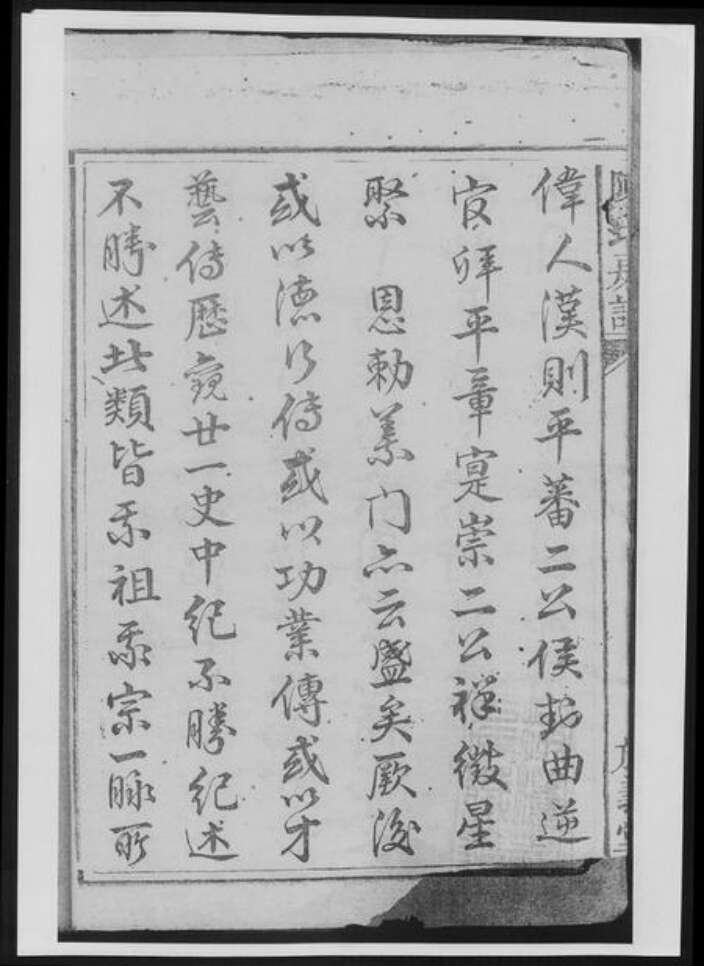 偉人漢則平蕃二公侯封曲逆
官拜平章寔崇二公祥徵星
聚 恩勅羕门亦云盛矣厥後
或以德行傳或以功業傳或以才
藝傳歷寃廿一史中紀不勝紀述
不勝述此類皆吾祖吾宗一脉所